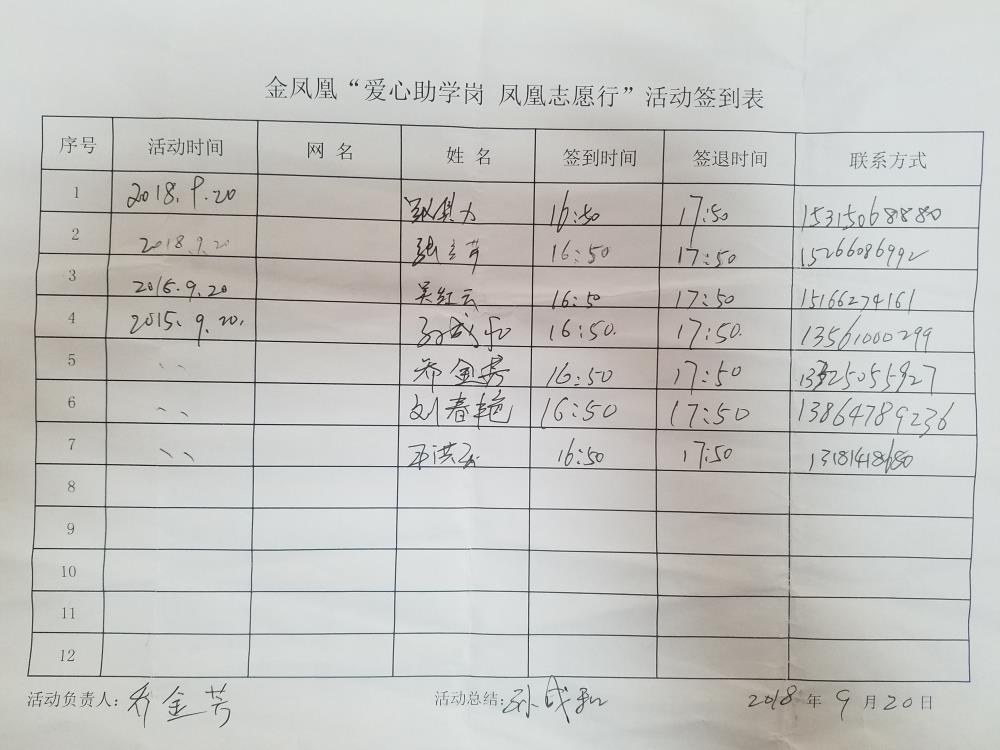 金凤凰“爱心助学岗 凤凰志愿行”活动签到表
序号 活动时间 网 名 姓 名 签到时间 签退时间 联系方式
1 2018.9.20 16:50 17:50 15315068880
2 2018.9.20 16:50 17:50 15266086992
3 2015.9.20 吴红云 16:50 17:50 15166274161
4 2015.9.20. 孙成和 16:50. 17:50. 13561000299
5 、、 乔金芳 16:50 17:50 13325055927
6 、、 刘春艳 16:50 17:50 13864789236
7 、、 王洪云 16:50 17:50 13181418680
8
9
10
11
12
活动负责人：乔金芳 活动总结：孙成和 2018 年 9 月 20 日